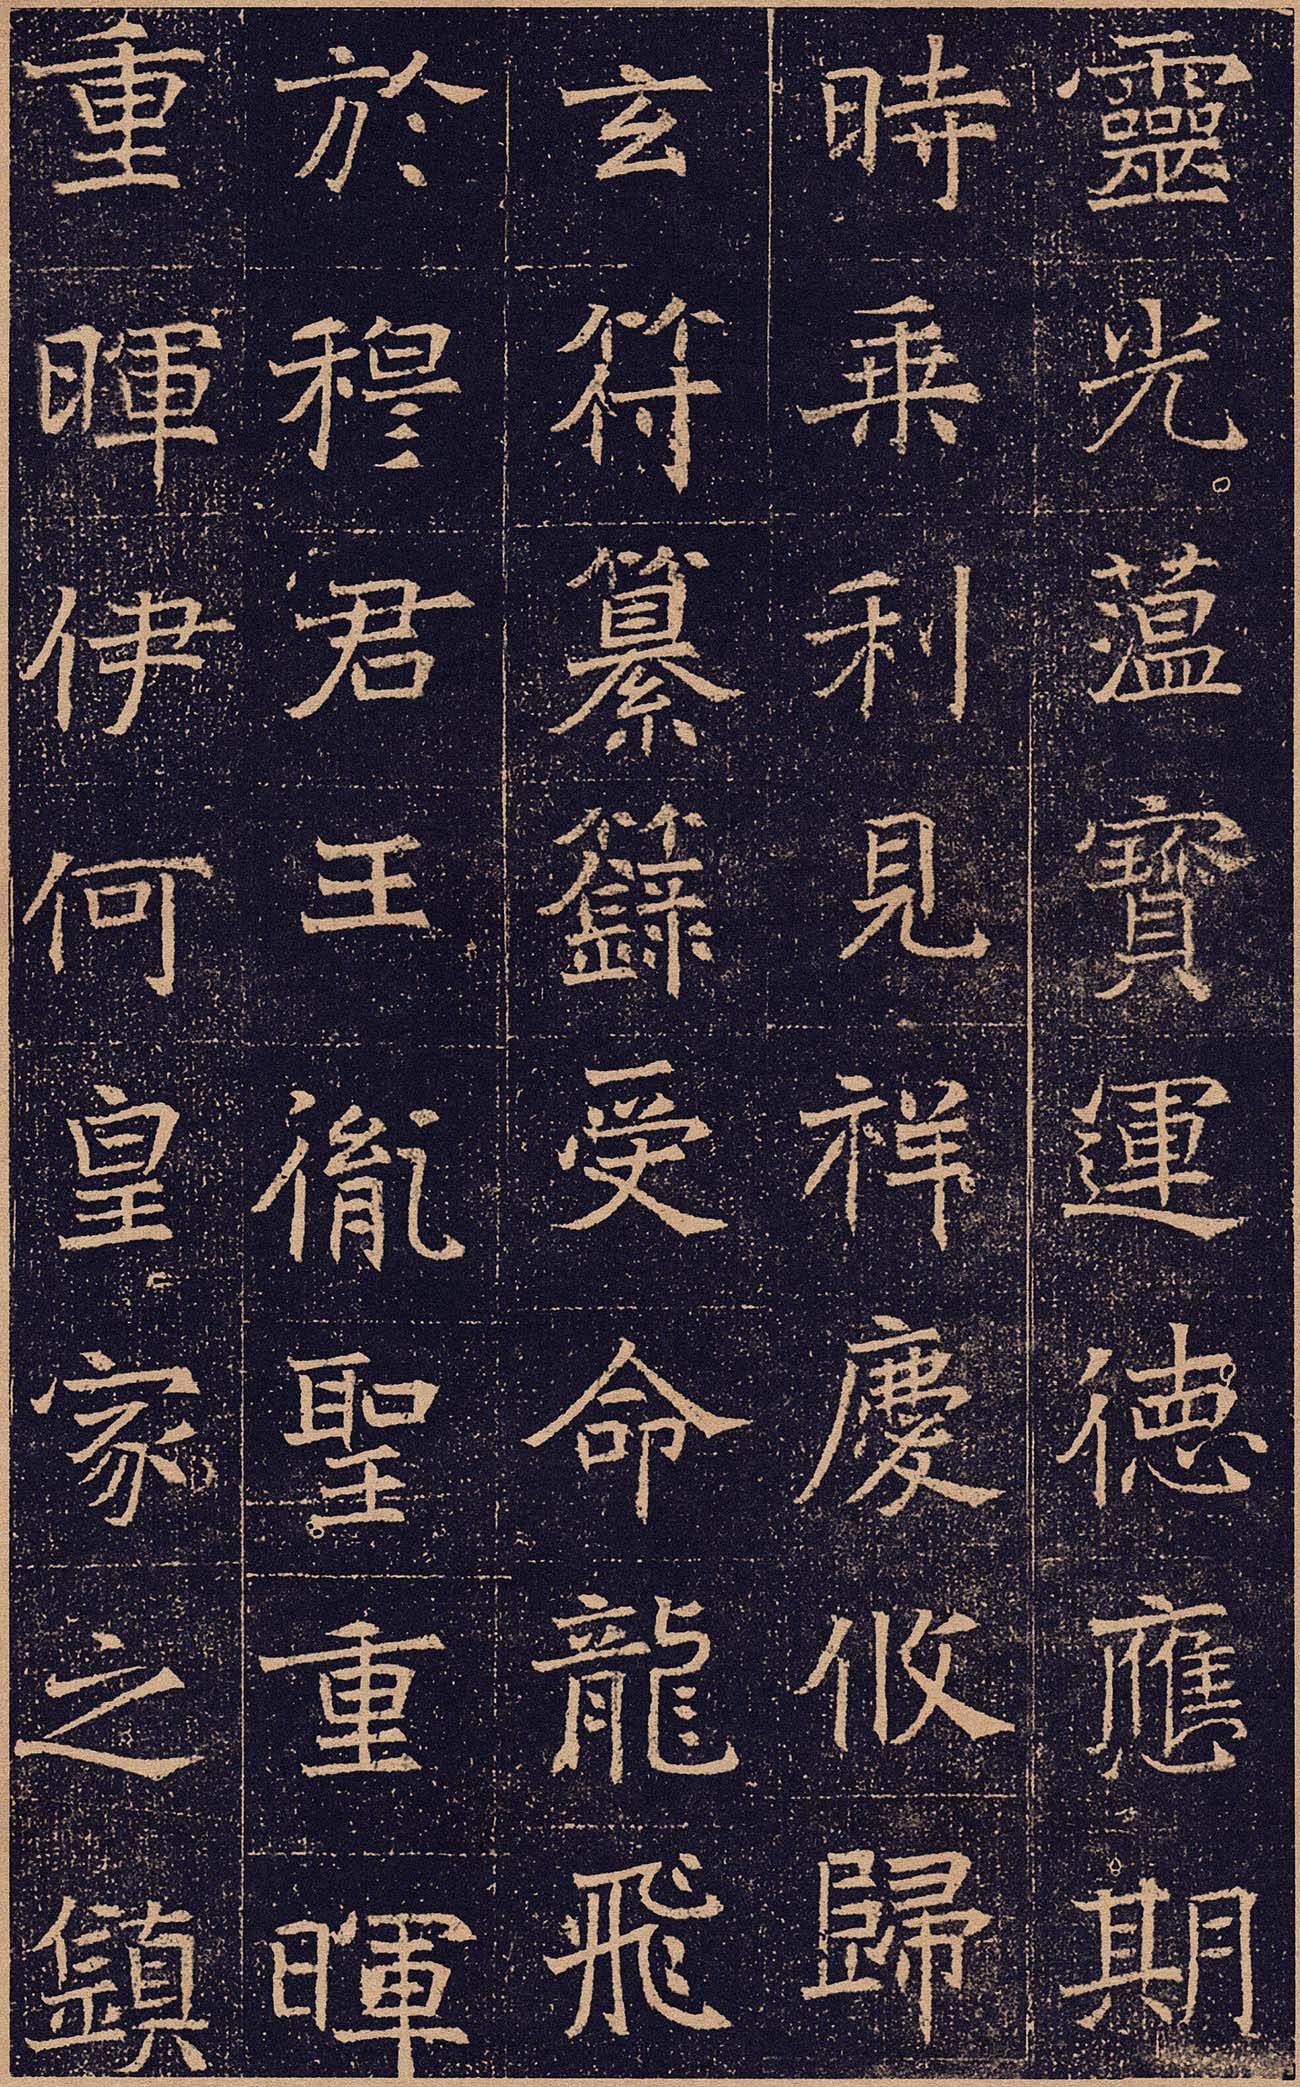 靈光蕰寶運德應期
時乘利見祥慶攸歸
玄符纂籙受命龍飛
於穆君王胤聖重暉
重暉伊何皇家之鎮